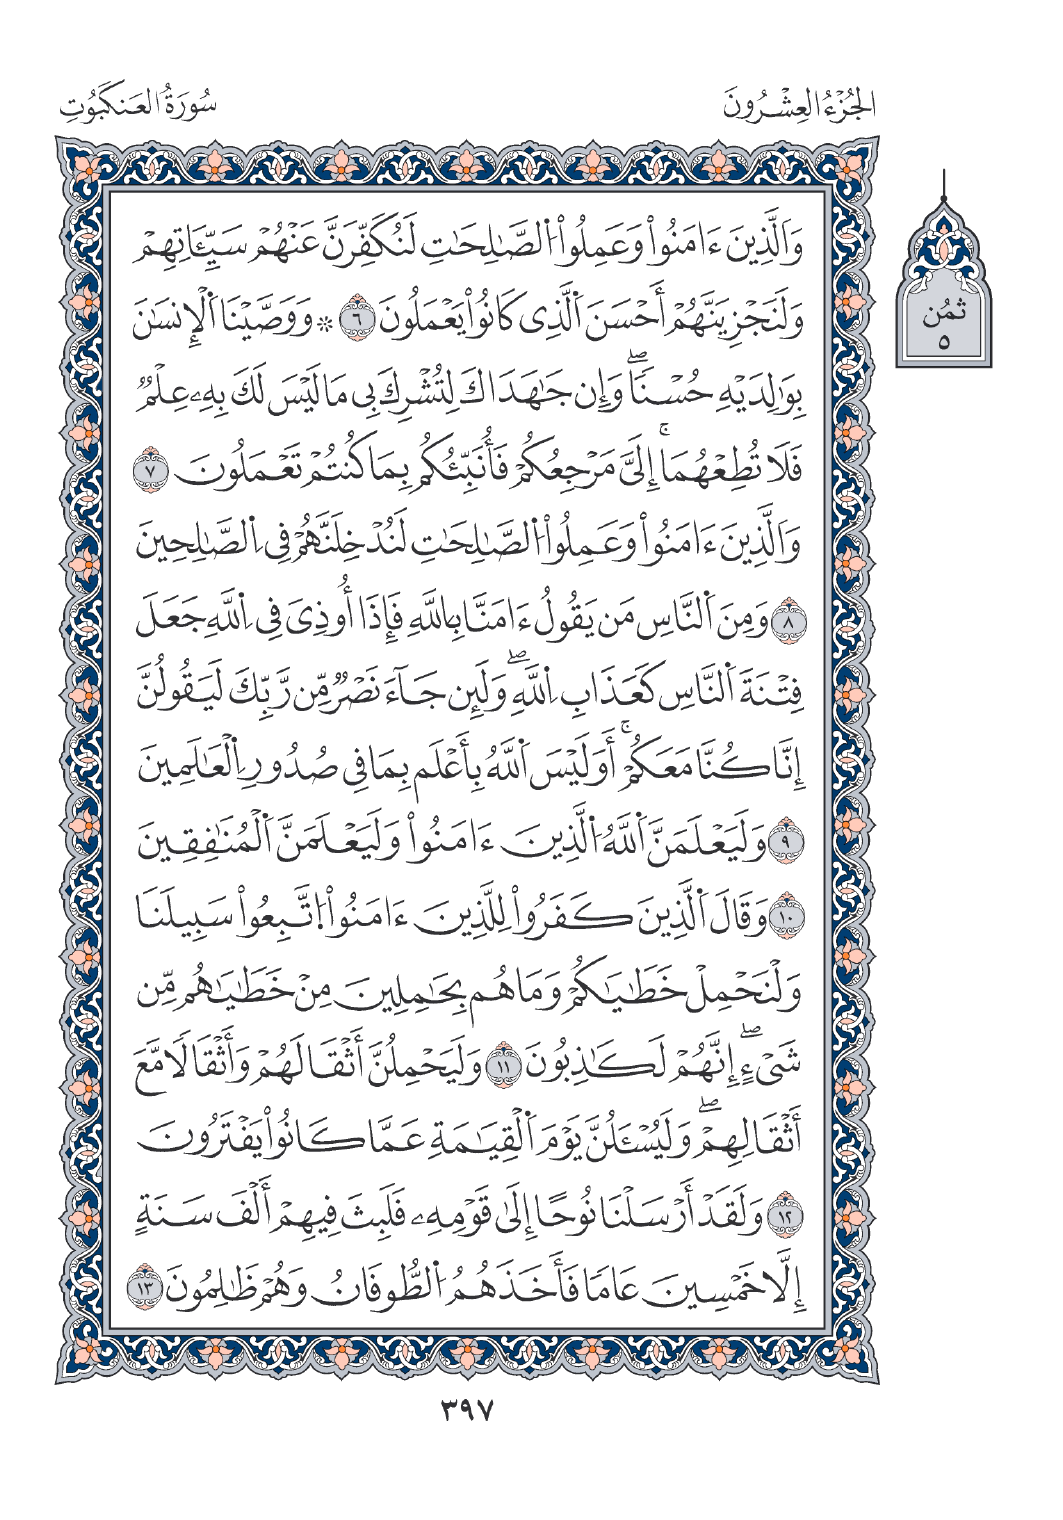 الجُزْءُ العِشْرُونَ
سُورَةُ العَنكَبُوتِ
وَالَّذِينَ ءَامَنُواْ وَعَمِلُواْ الصَّٰلِحَٰتِ لَنُكَفِّرَنَّ عَنْهُمْ سَيِّـَٔاتِهِمْ
وَلَنَجْزِيَنَّهُمْ أَحْسَنَ الَّذِى كَانُواْ يَعْمَلُونَ ٦ ۞ وَوَصَّيْنَا الْإِنسَٰنَ
بِوَٰلِدَيْهِ حُسْنًا ۖ وَإِن جَٰهَدَاكَ لِتُشْرِكَ بِى مَا لَيْسَ لَكَ بِهِۦ عِلْمٌ
فَلَا تُطِعْهُمَا ۚ إِلَىَّ مَرْجِعُكُمْ فَأُنَبِّئُكُم بِمَا كُنتُمْ تَعْمَلُونَ ٧
وَالَّذِينَ ءَامَنُواْ وَعَمِلُواْ الصَّٰلِحَٰتِ لَنُدْخِلَنَّهُمْ فِى الصَّٰلِحِينَ
٨ وَمِنَ النَّاسِ مَن يَقُولُ ءَامَنَّا بِاللَّهِ فَإِذَا أُوذِىَ فِى اللَّهِ جَعَلَ
فِتْنَةَ النَّاسِ كَعَذَابِ اللَّهِ ۖ وَلَئِن جَآءَ نَصْرٌ مِّن رَّبِّكَ لَيَقُولُنَّ
إِنَّا كُنَّا مَعَكُمْ ۚ أَوَلَيْسَ اللَّهُ بِأَعْلَم بِمَا فِى صُدُورِ الْعَٰلَمِينَ
٩ وَلَيَعْلَمَنَّ اللَّهُ الَّذِينَ ءَامَنُواْ وَلَيَعْلَمَنَّ الْمُنَٰفِقِينَ
١٠ وَقَالَ الَّذِينَ كَفَرُواْ لِلَّذِينَ ءَامَنُواْ اتَّبِعُواْ سَبِيلَنَا
وَلْنَحْمِلْ خَطَٰيَٰكُمْ وَمَا هُم بِحَٰمِلِينَ مِنْ خَطَٰيَٰهُم مِّن
شَىْءٍ ۖ إِنَّهُمْ لَكَٰذِبُونَ ١١ وَلَيَحْمِلُنَّ أَثْقَالَهُمْ وَأَثْقَالًا مَّعَ
أَثْقَالِهِمْ ۖ وَلَيُسْـَٔلُنَّ يَوْمَ الْقِيَٰمَةِ عَمَّا كَانُواْ يَفْتَرُونَ
١٢ وَلَقَدْ أَرْسَلْنَا نُوحًا إِلَىٰ قَوْمِهِۦ فَلَبِثَ فِيهِمْ أَلْفَ سَنَةٍ
إِلَّا خَمْسِينَ عَامًا فَأَخَذَهُمُ الطُّوفَانُ وَهُمْ ظَٰلِمُونَ ١٣
ثمُن
٥
٣٩٧